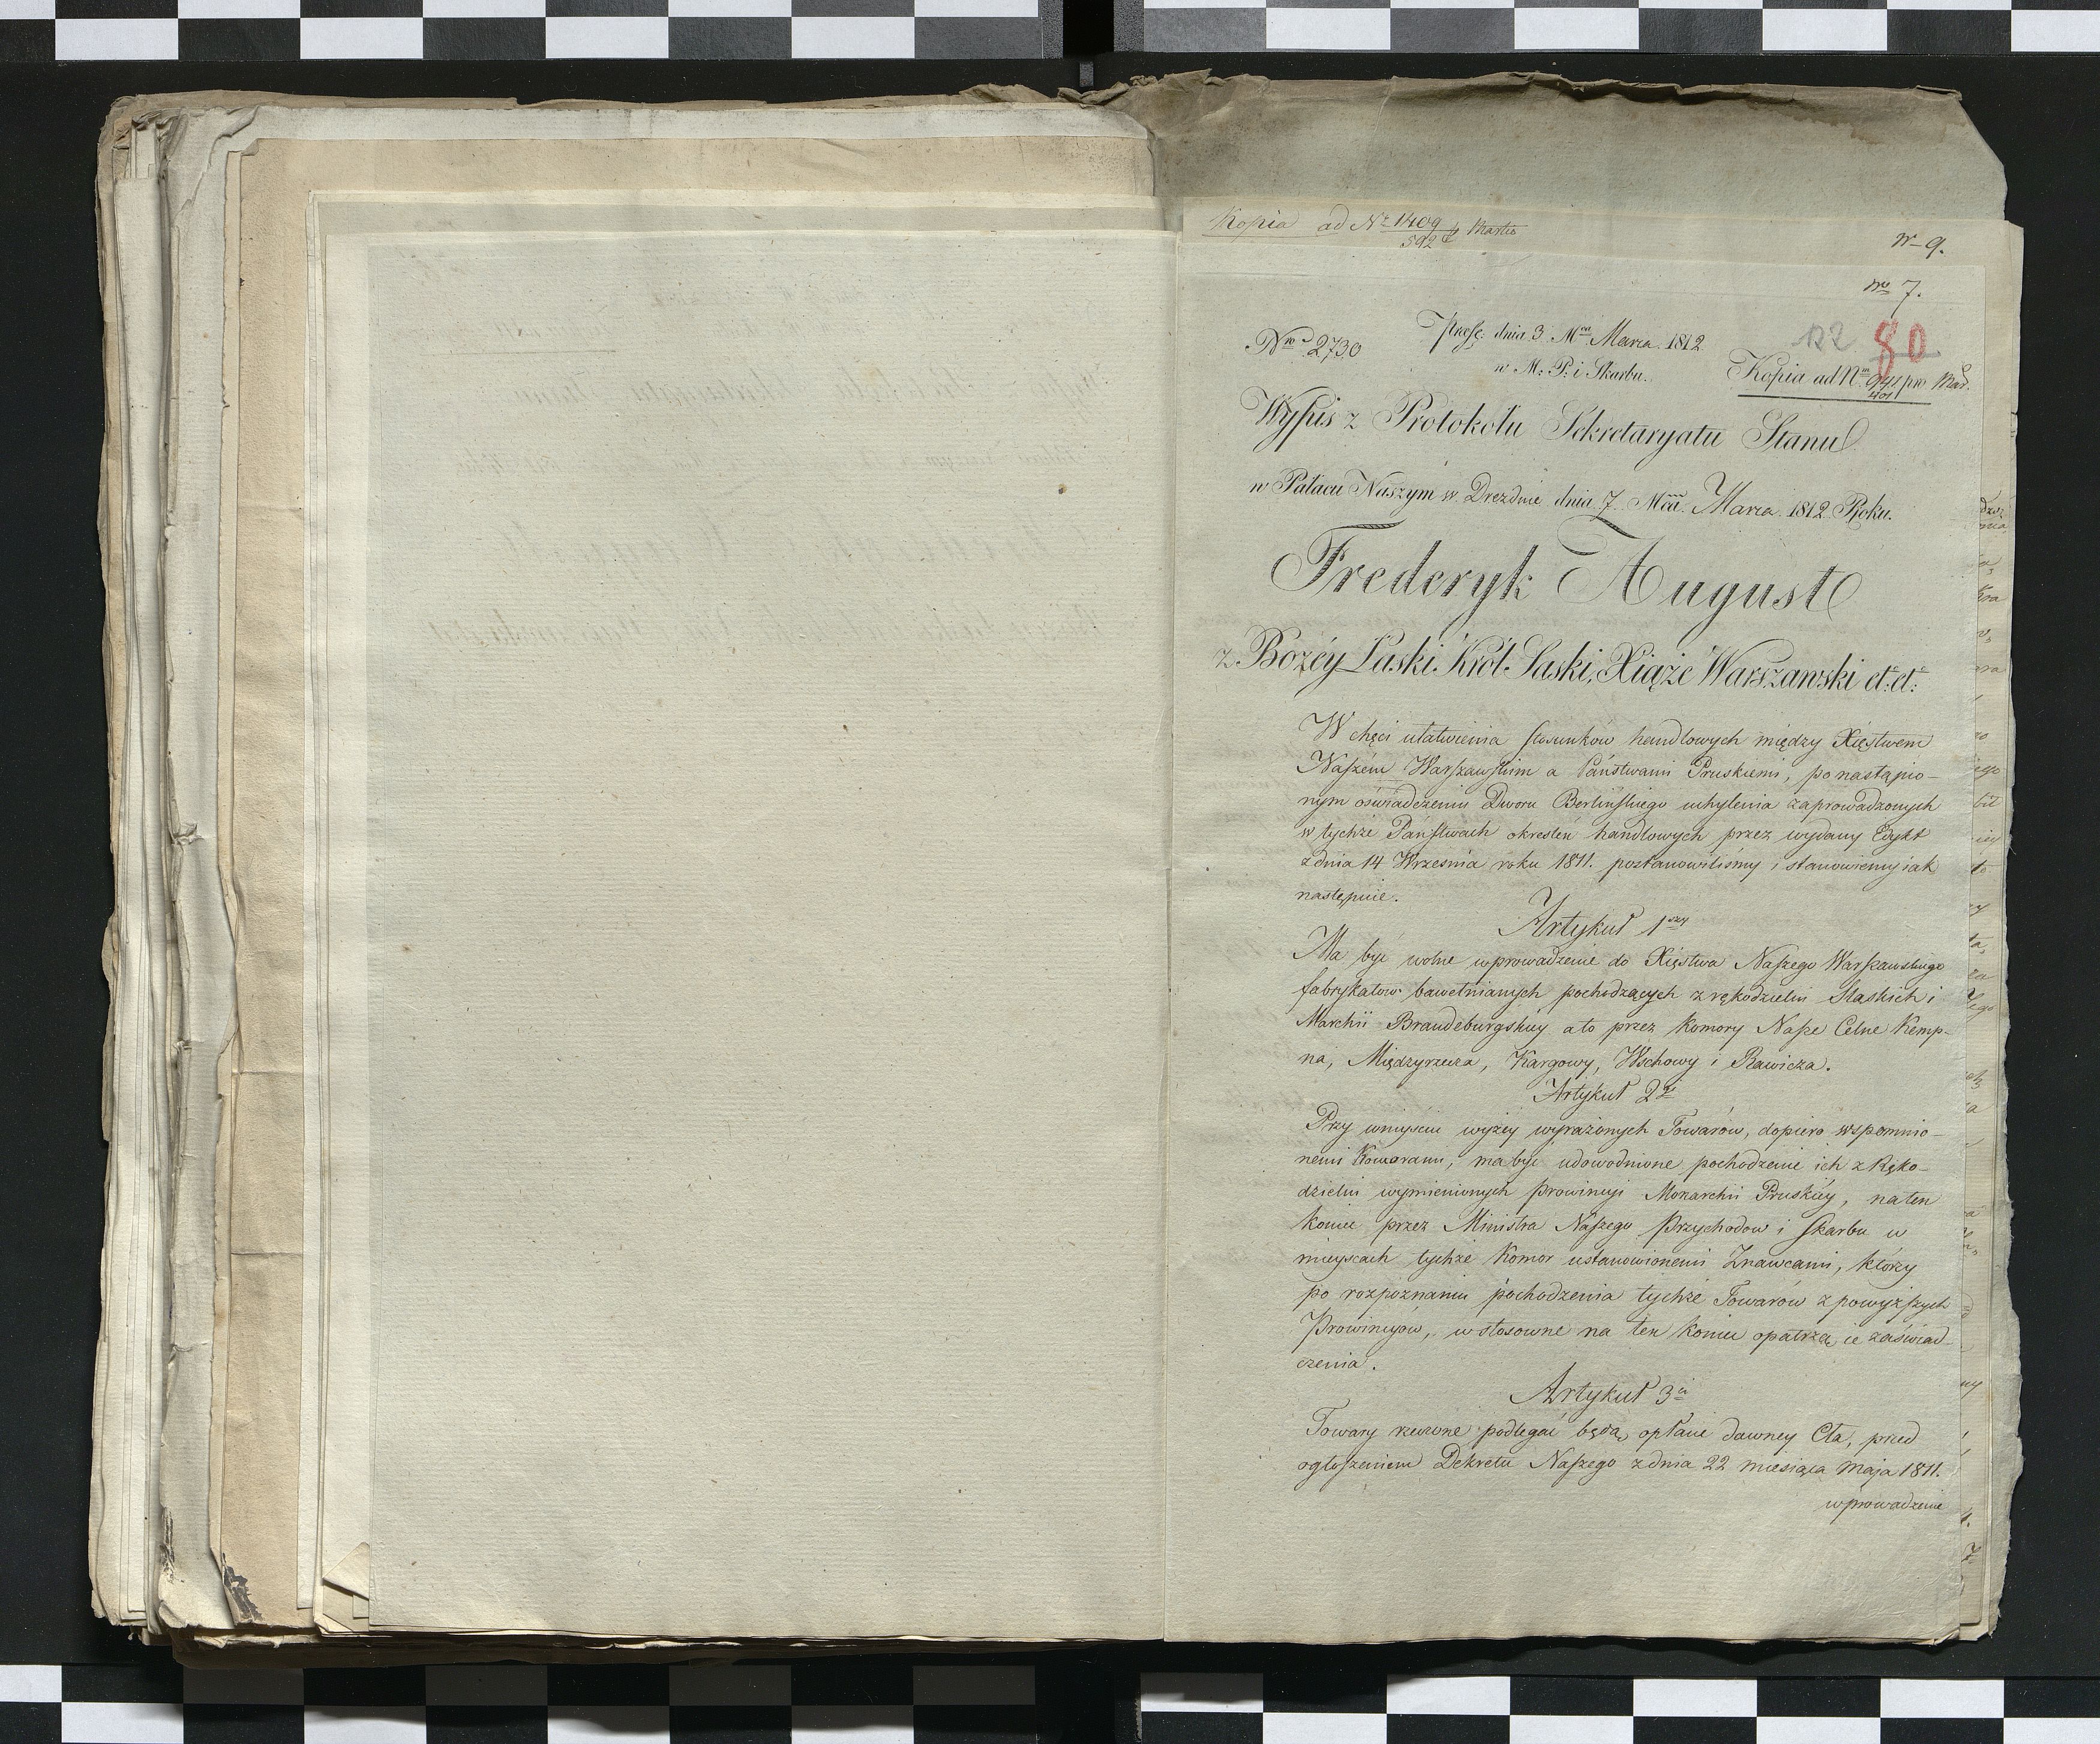 Kopia ad Nr 1409/592 Martio
Nr 9.
Nro 7.
Nro 2730
Praes: dnia 3. Mca Marca 1812
w M. P. i Skarbu.
122 80
Kopia ad Nrm 941/401 pro Mar.
Wypis z Protokołu Sekretaryatu Stanu
w Pałacu Naszym w Dreźnie dnia 7. Mca Marca 1812 Roku.
Frederyk August
z Bożéy Łaski Król Saski, Xiąże Warszawski et: et:
W chęci ułatwienia stosunków handlowych między Xięstwem
Naszém Warszawskim a Państwami Pruskiemi, po nastąpio-
nym oświadczeniu Dworu Berlińskiego uchylenia zaprowadzonych
w tychże Państwach określeń handlowych przez wydany Edykt
z dnia 14 Września roku 1811. postanowiliśmy i stanowiemy jak
następuie.
Artykuł 1szy
Ma być wolne wprowadzenie do Xięstwa Naszego Warszawskiego
fabrykatów bawełnianych pochodzących z rękodzielni Sląskich i
Marchii Brandeburgskiey a to przez Komory Nasze Celne Kemp-
na, Międzyrzecza, Kargowy, Wschowy i Rawicza.
Artykuł 2gi
Przy wniyściu wyżey wyrażonych Towarów, dopiero wspomnio-
nemi Komorami, ma być udowodnione pochodzenie ich z Ręko-
dzielni wymienionych prowincyi Monarchii Pruskiéy, na ten
koniec przez Ministra Naszego Przychodow i Skarbu w
mieyscach tychże Komor ustanowionemi Znawcami, którzy
po rozpoznaniu pochodzenia tychże Towarów z powyższych
Prowincyów, w stosowne na ten koniec opatrzą ie zaświad-
czenia.
Artykuł 3ci
Towary rzeczone podlegać będą opłacie dawney Cła, przed
ogłoszeniem Dekretu Naszego z dnia 22 miesiąca Maja 1811.
wprowadzenie